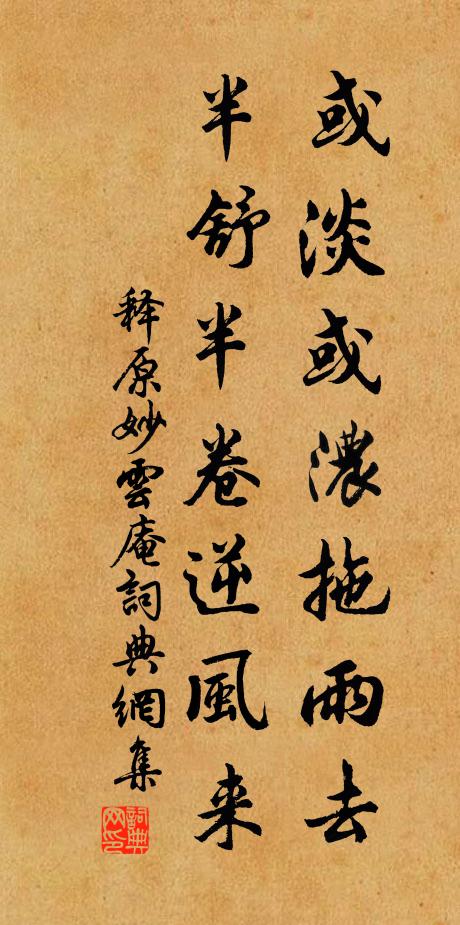 或淡或濃拖雨去
半舒半卷逆風来
释原妙雲庵詞典網集
詞典网印